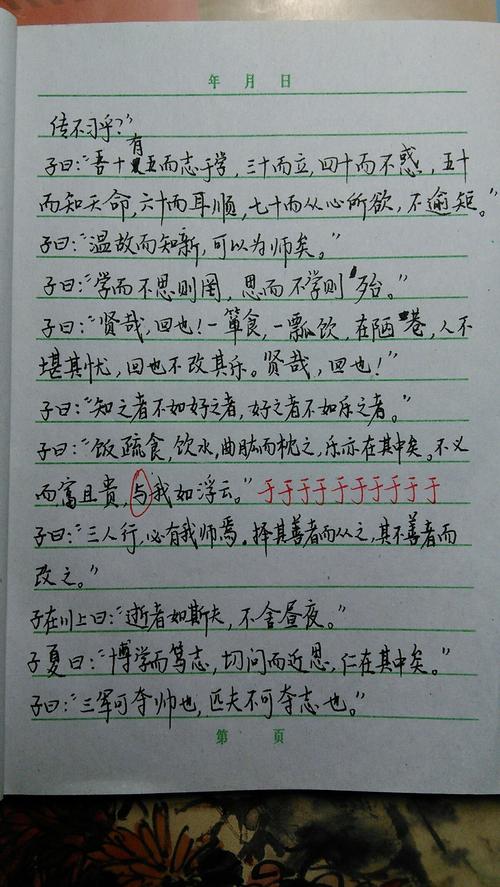 年 月 日
传不习乎？”
有
子曰：“吾十五而志于学，三十而立，四十而不惑，五十
而知天命，六十而耳顺，七十而从心所欲，不逾矩。”
子曰：“温故而知新，可以为师矣。”
子曰：“学而不思则罔，思而不学则殆。”
子曰：“贤哉，回也！一箪食，一瓢饮，在陋巷，人不
堪其忧，回也不改其乐。贤哉，回也！”
子曰：“知之者不如好之者，好之者不如乐之者。”
子曰：“饭疏食，饮水，曲肱而枕之，乐亦在其中矣。不义
而富且贵，与我如浮云。” 于于于于于于于于于于
子曰：“三人行，必有我师焉。择其善者而从之，其不善者而
改之。”
子在川上曰：“逝者如斯夫，不舍昼夜。”
子夏曰：“博学而笃志，切问而近思，仁在其中矣。”
子曰：“三军可夺帅也，匹夫不可夺志也。”
第 页